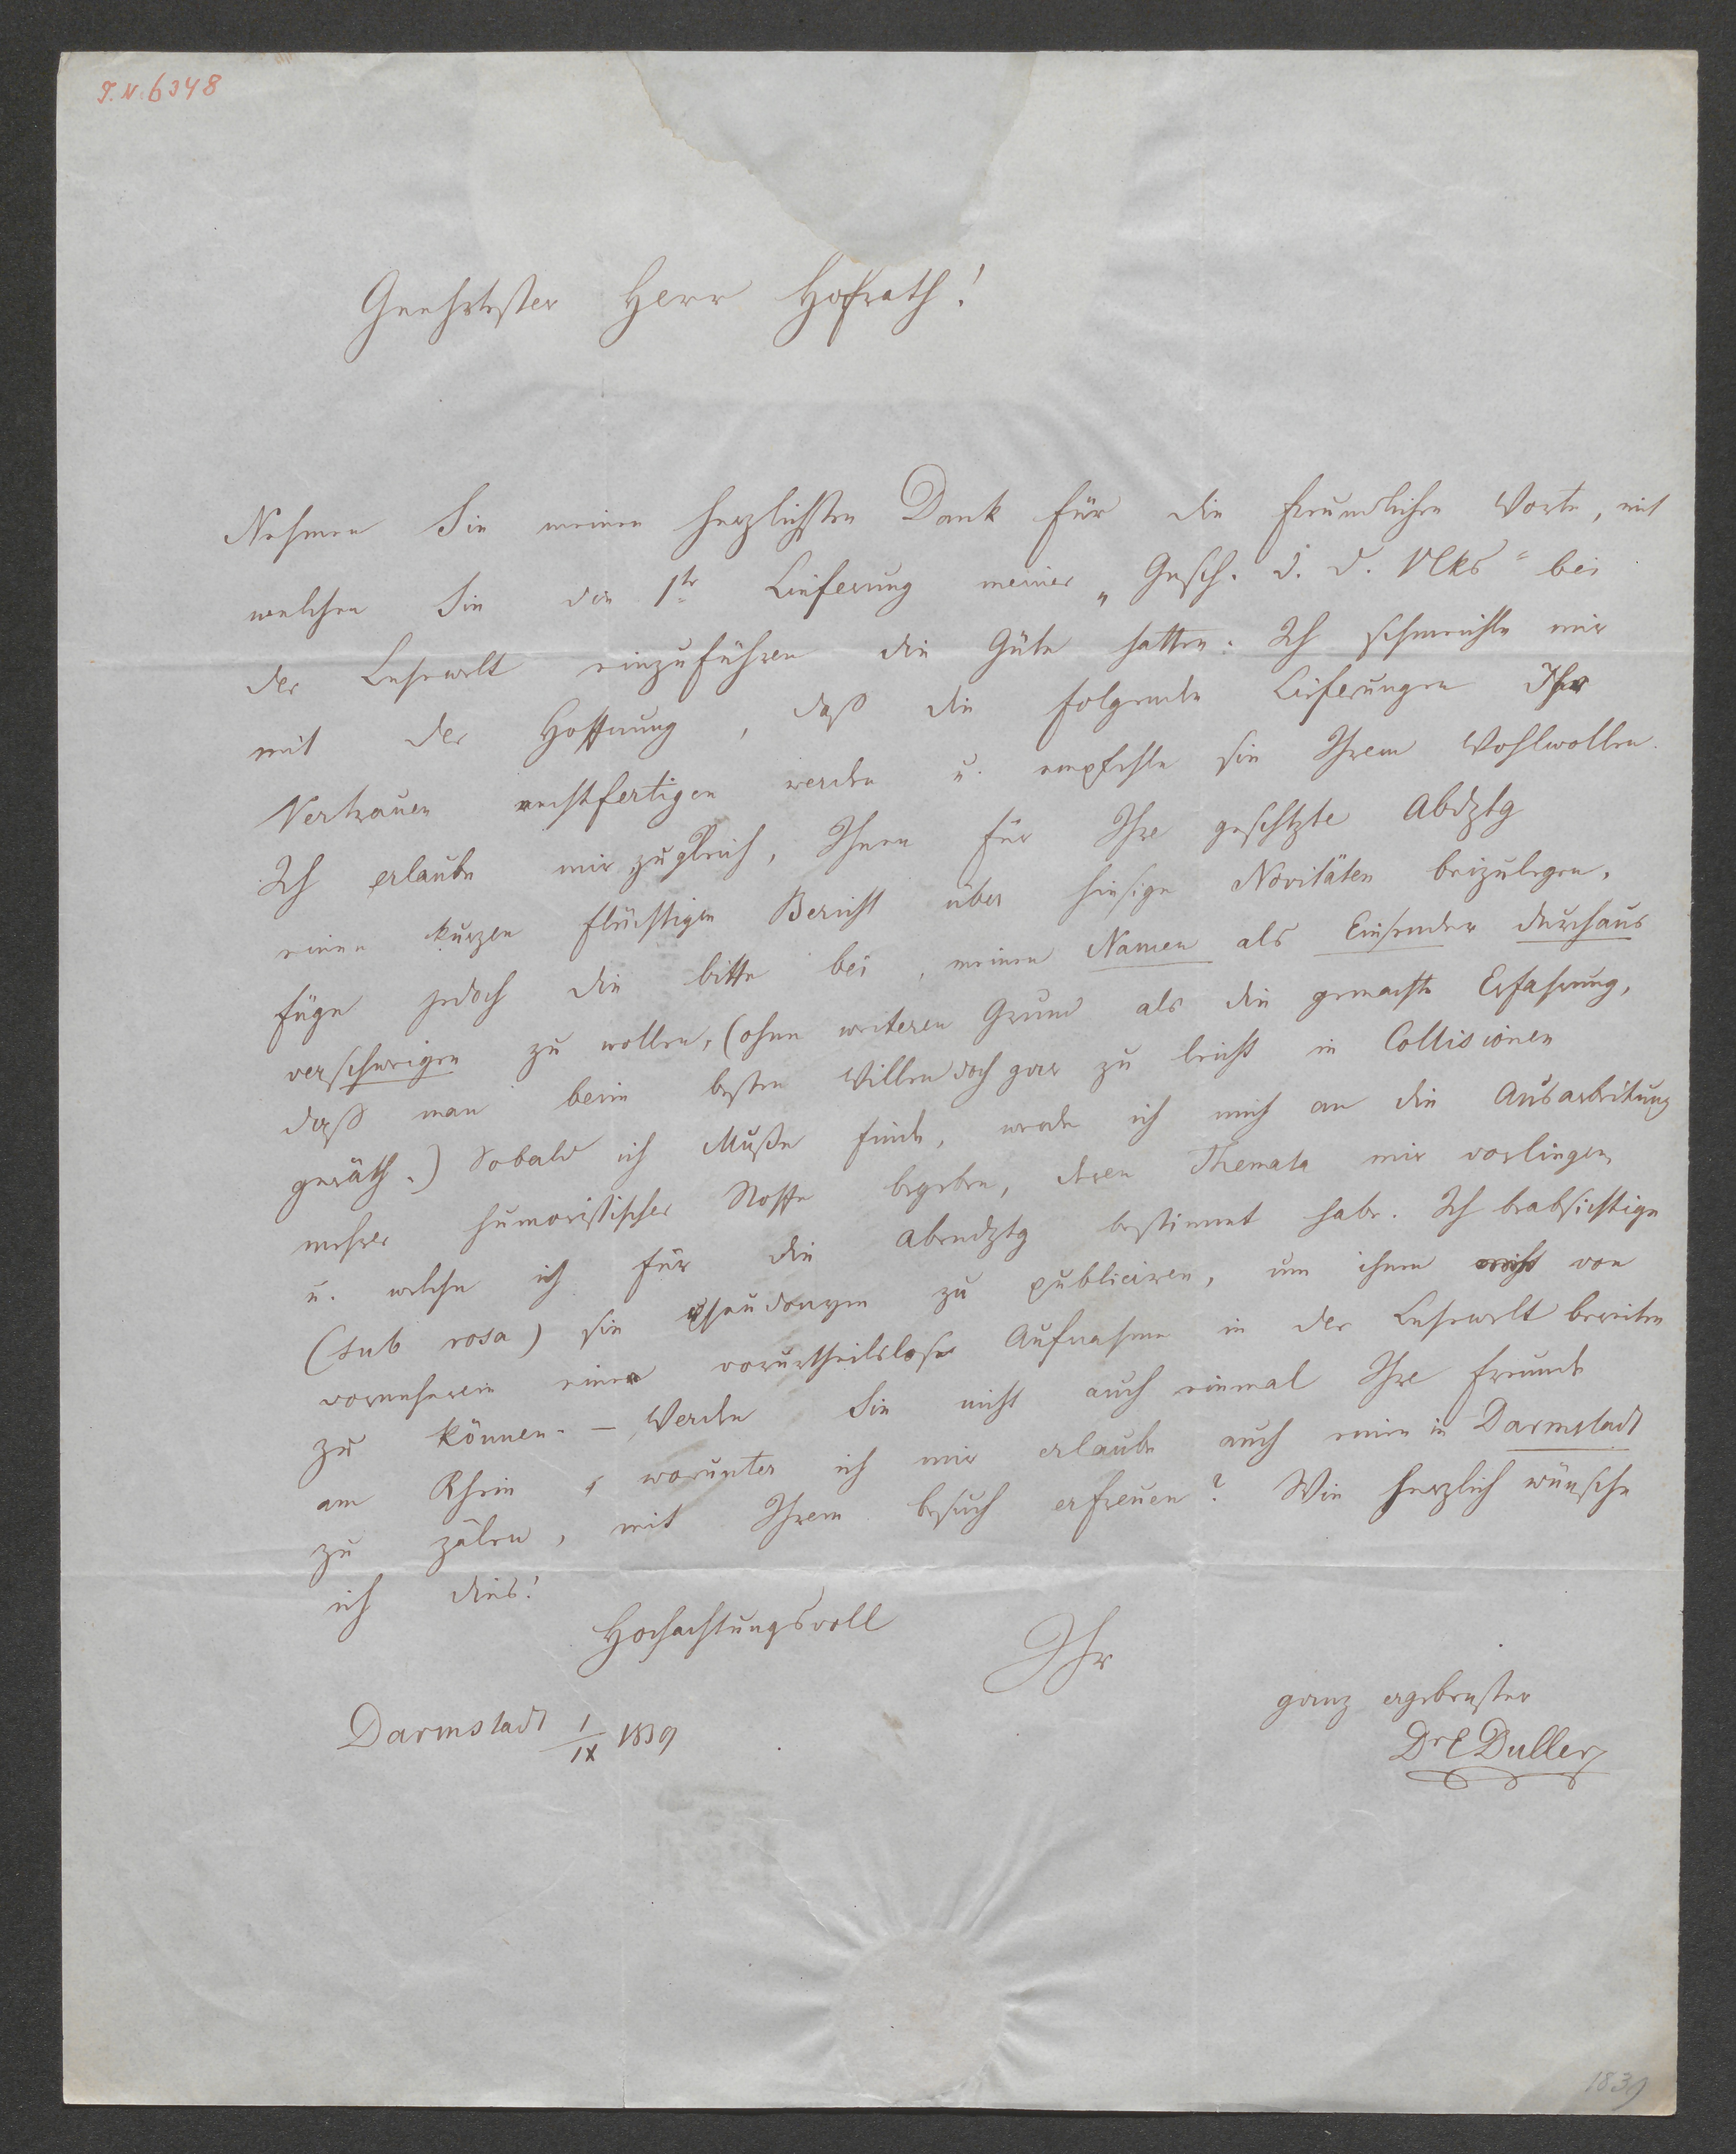 I.N. 6348
Geehrtester Herr Hofrath!
Nehmen Sie meinen herzlichsten Dank für die freundlichen Worte, mit
welchen Sie die 1te Lieferung meiner „Gesch. d. d. Vlks“ bei
der Lesewelt einzuführen die Güte hatten. Ich schmeichle mir
mit der Hoffnung, daß die folgenden Lieferungen Ihr
Vertrauen rechtfertigen werden u. empfehle sie Ihrem Wohlwollen.
Ich erlaube mir zugleich, Ihnen für Ihre geschätzte Abdztg
einen kurzen flüchtigen Bericht über hiesige Novitäten beizulegen,
füge jedoch die bitte bei, meinen Namen als Einsender durchaus
verschweigen zu wollen, (ohne weiteren Grund als die gemachte Erfahrung,
daß man beim besten Willen doch gar zu leicht in Collisionen
geräth.) Sobald ich Muße finde, werde ich mich an die Ausarbeitung
mehrer humoristischer Stoffe begeben, deren Themata mir vorliegen,
u. welche ich für die Abendztg bestimmt habe. Ich beabsichtige
(sub rosa) sie pseudonym zu publiciren, um ihnen von
vorneherein eine vorurtheilslose Aufnahme in der Lesewelt bereiten
zu können. – Werden Sie nicht auch einmal Ihre Freunde
am Rhein, worunter ich mir erlaube auch einen in Darmstadt
zu zälen, mit Ihrem besuch erfreuen? Wie herzlich wünsche
ich dies!
Hochachtungsvoll
Ihr
ganz ergebenster
Dr E Duller
Darmstadt 1/IX 1839
1839